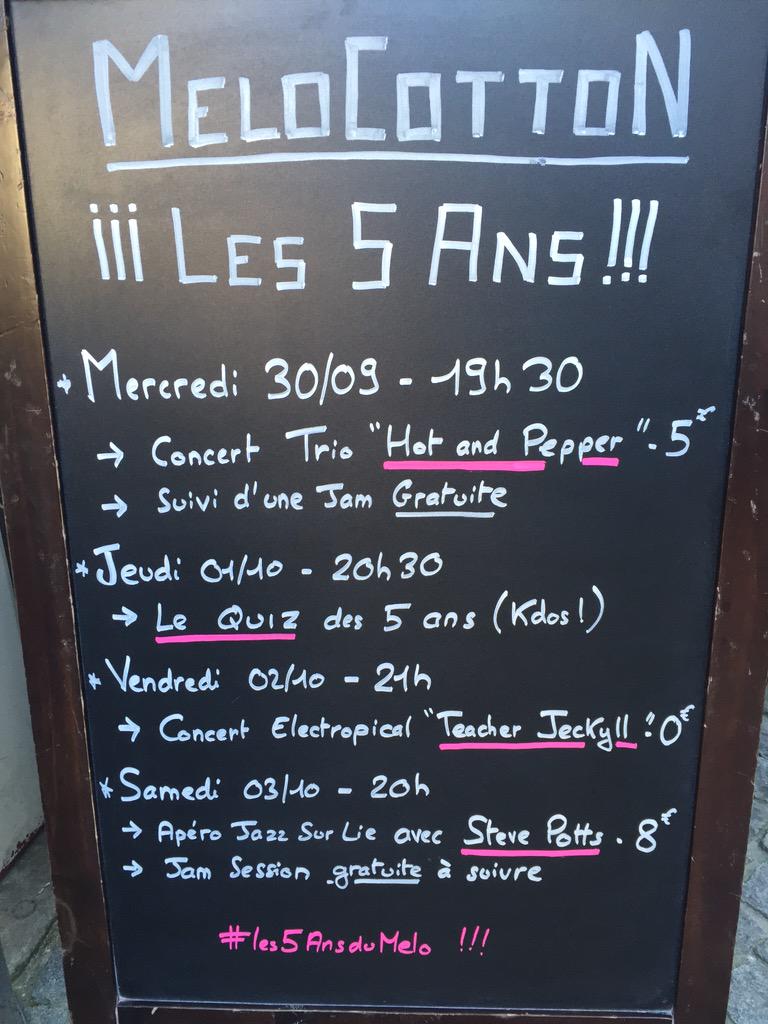 MELOCOTTON
¡¡¡ LES 5 ANS !!!
* Mercredi 30/09 - 19h30
→ Concert Trio "Hot and Pepper" - 5€
→ Suivi d'une Jam Gratuite
* Jeudi 01/10 - 20h30
→ Le Quiz des 5 ans (Kdos!)
* Vendredi 02/10 - 21h
→ Concert Electropical "Teacher Jeckyll". 0€
* Samedi 03/10 - 20h
→ Apéro Jazz Sur Lie avec Steve Potts . 8€
→ Jam Session gratuite à suivre
#les5AnsduMelo !!!